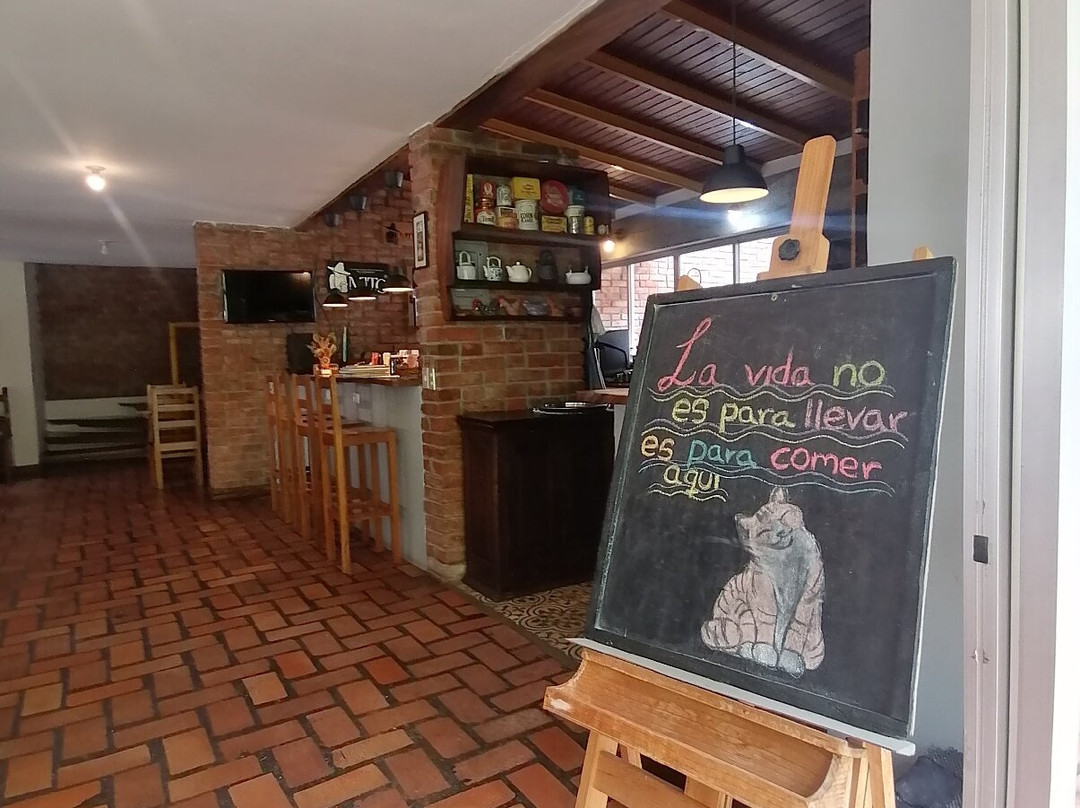 MTC
La vida no
es para llevar
es para comer
aquí